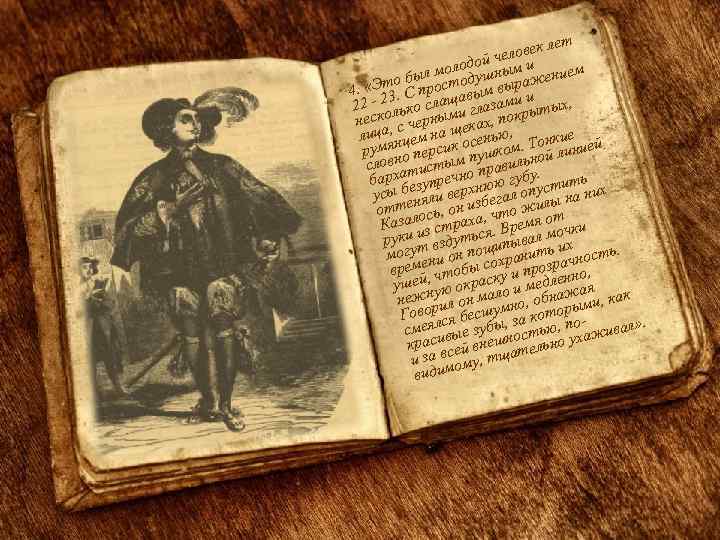 4. «Это был молодой человек лет
22 - 23. С простодушным и
несколько слащавым выражением
лица, с черными глазами и
румянцем на щеках, покрытых,
словно персик осенью,
бархатистым пушком. Тонкие
усы безупречно правильной линией
оттеняли верхнюю губу.
Казалось, он избегал опустить
руки из страха, что жилы на них
могут вздуться. Время от
времени он пощипывал мочки
ушей, чтобы сохранить их
нежную окраску и прозрачность.
Говорил он мало и медленно,
смеялся бесшумно, обнажая
красивые зубы, за которыми, как
и за всей внешностью, по-
видимому, тщательно ухаживал».